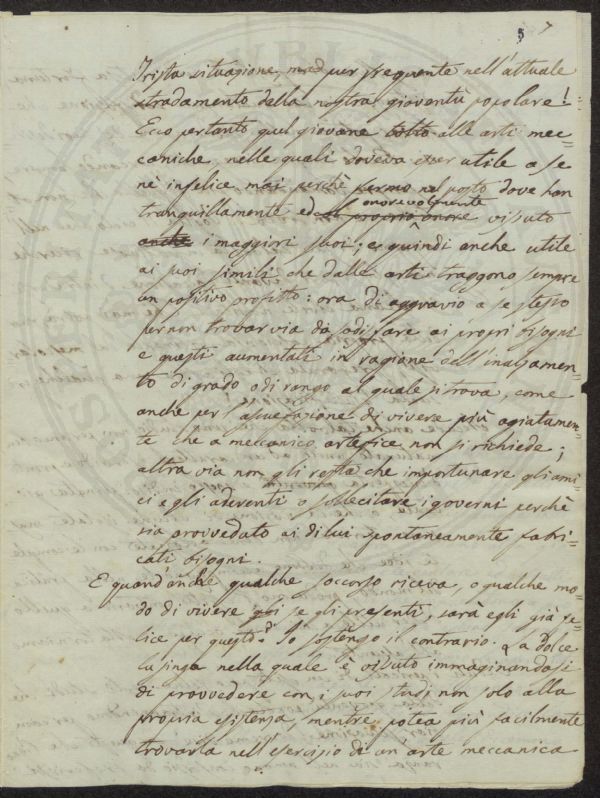 5 7
Trista situazione, ma pur frequente nell'attuale
stradamento della nostra gioventù popolare!
Ecco pertanto quel giovane tolto alle arti mec=
caniche, nelle quali doveva esser utile a se
nè infelice mai perchè fermo nel posto dove han
onorevolmente
tranquillamente ed al proprio onore vissuto
anche i maggiori suoi; e quindi anche utile
ai suoi simili che dalle arti traggono sempre
un positivo profitto: ora di aggravio a se stesso
per non trovar via da sodisfare ai propri bisogni
e questi aumentati in ragione dell'inalzamen=
to di grado o di rango al quale si trova, come
anche per l'assuefazione di vivere più agiatamen=
te che a meccanico artefice non si richiede;
altra via non gli resta che importunare gli ami=
ci e gli aderenti o sollecitare i governi perchè
sia provvedato ai di lui spontaneamente fabri=
cati bisogni.
E quand'anche qualche soccorso riceva, o qualche mo=
do di vivere se gli presenti, sarà egli già fe=
lice per questo? Io sostengo il contrario. La dolce
lusinga nella quale è vissuto immaginandosi
di provvedere con i suoi studi non solo alla
propria esistenza, mentre potea più facilmente
trovarla nell'esercizio di un'arte meccanica